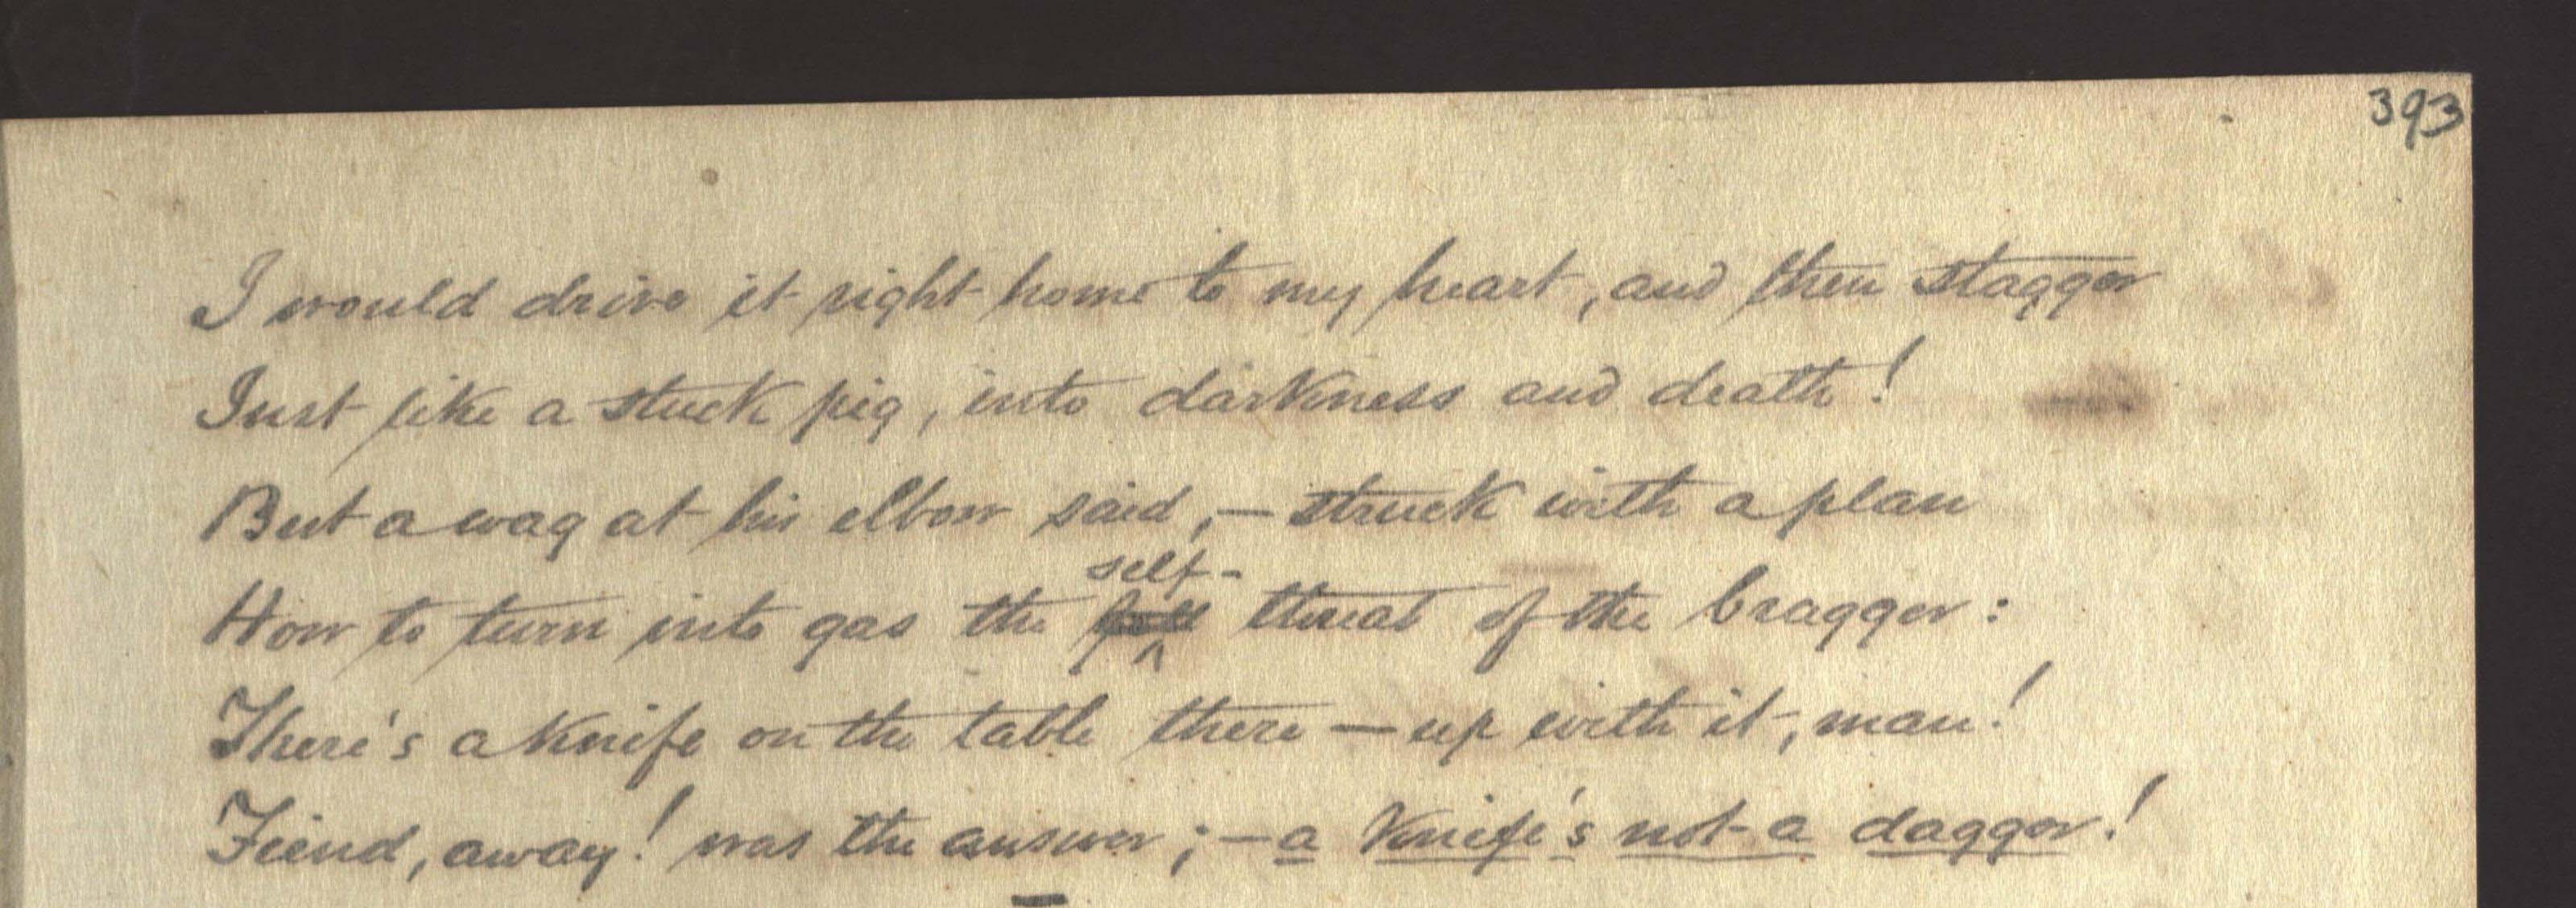 393
I would drive it right home to my heart, and then stagger
Just like a stuck pig, into darkness and death!
But a wag at his elbow said,—struck with a plan
self-
How to turn into gas the threat of the bragger:
There's a knife on the table there—up with it, man!
Fiend, away! was the answer;—a knife's not a dagger!